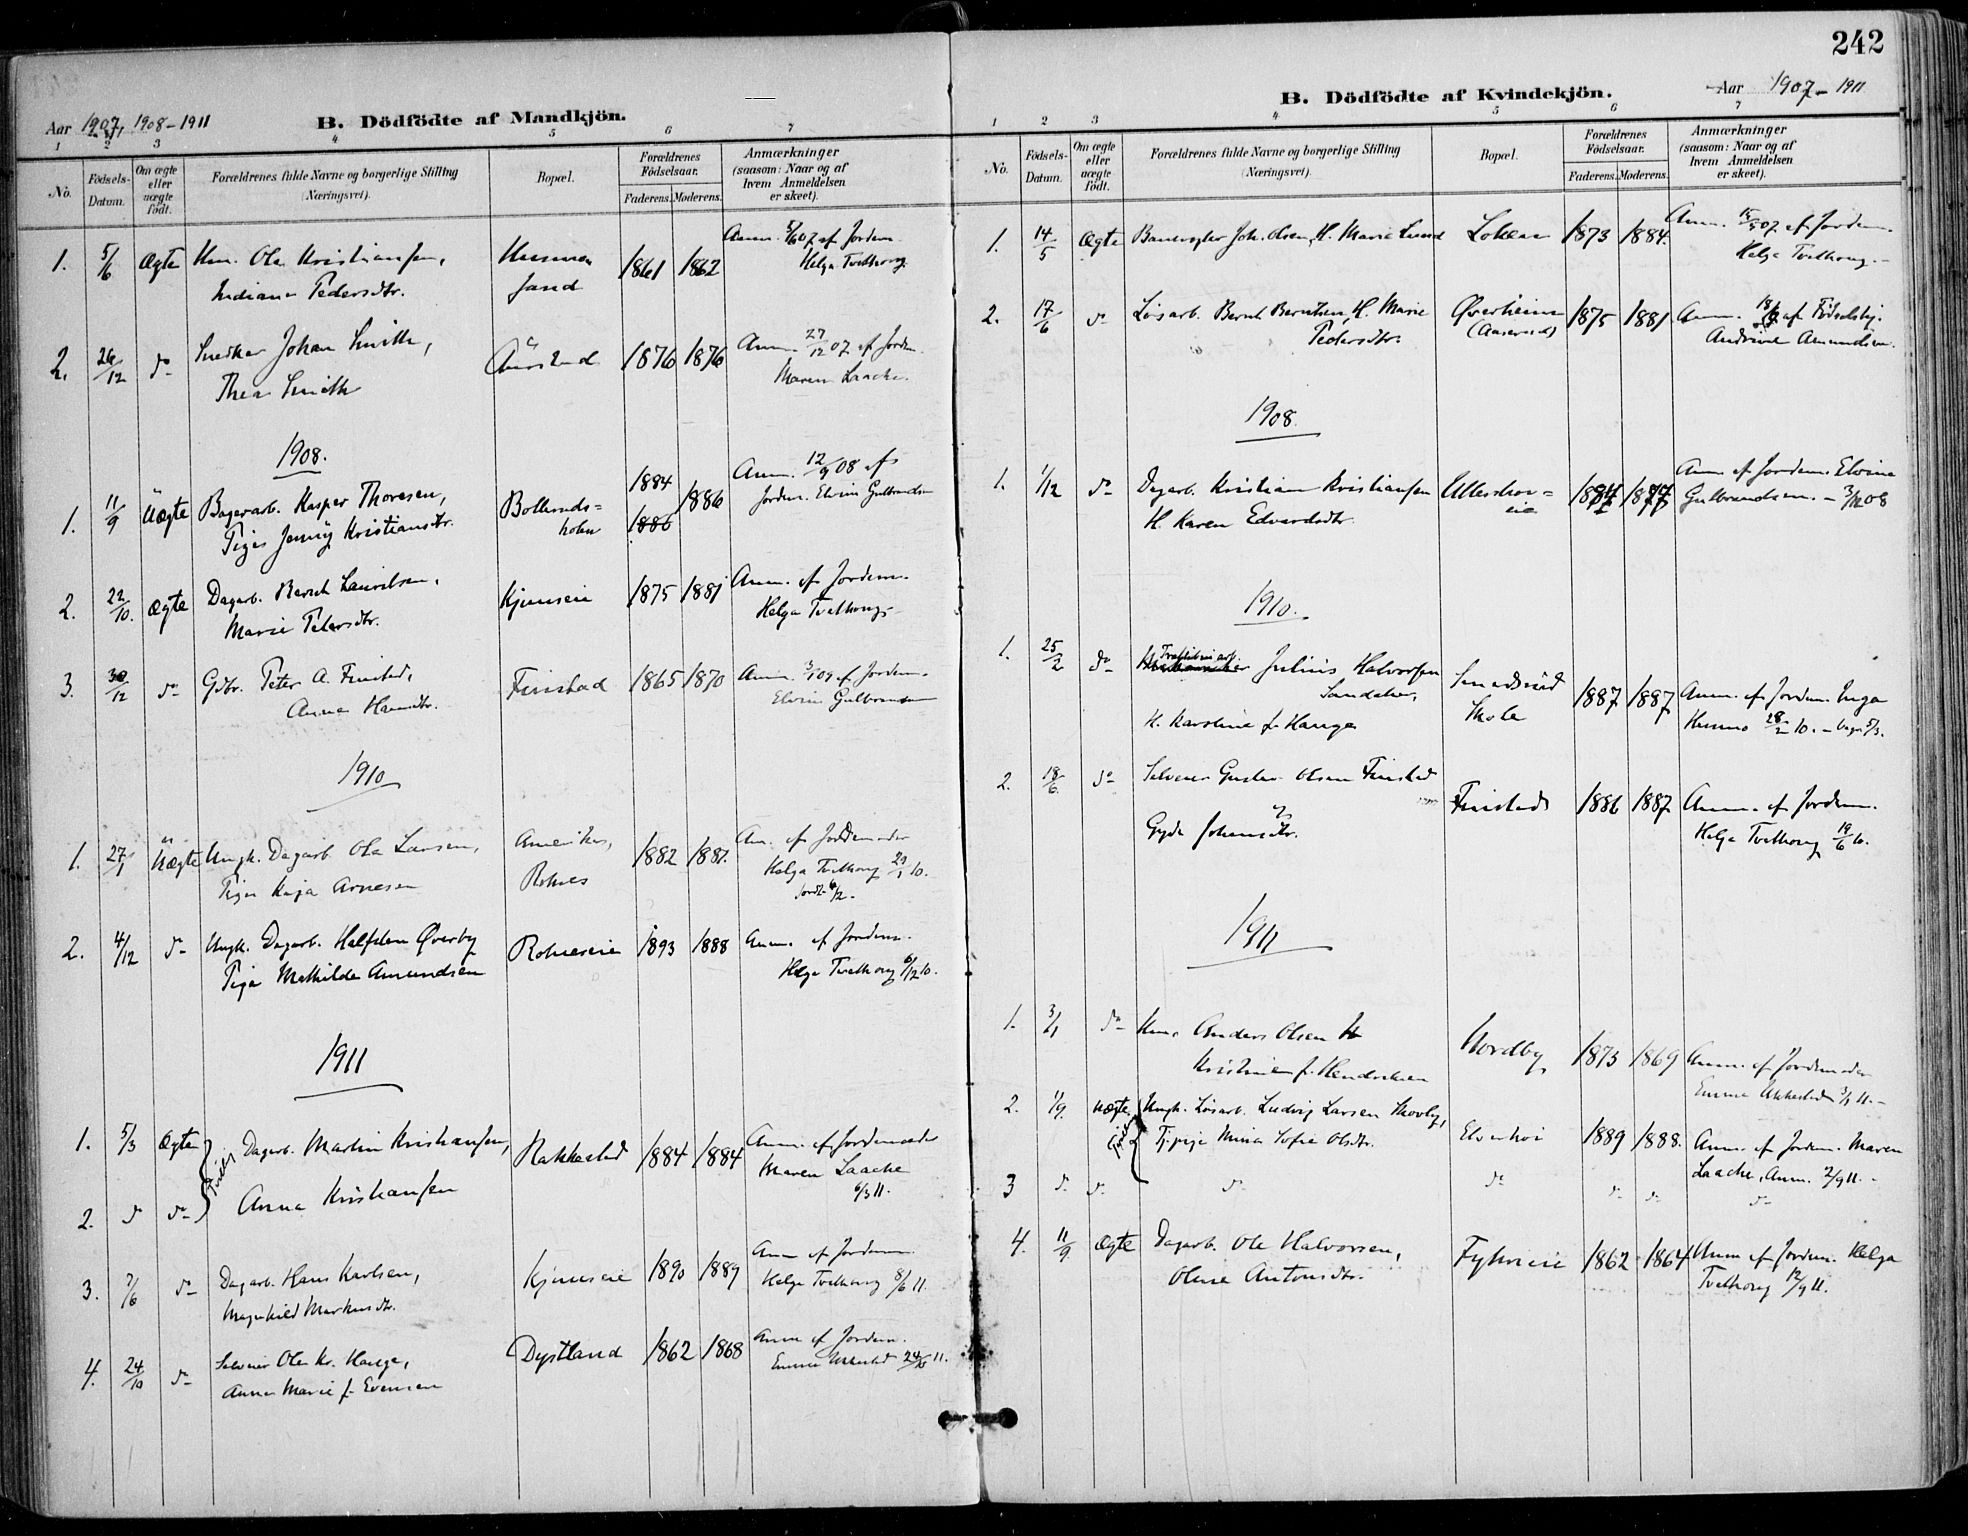 242
Aar 1907, 1908-1911
B. Dödfödte af Mandkjön.
1 2 3 4 5 6 7
No. Födsels-Datum. Om ægte eller uægte födt. Forældrenes fulde Navne og borgerlige Stilling (Næringsvei). Bopæl. Forældrenes Födselsaar. Faderens. Moderens. Anmærkninger (saasom: Naar og af hvem Anmeldelsen er skeet).
1. 5/6 Ægte Ole Kristiansen, 1861 1862 Anm. 5/6 07 af Jordm.
Pedersdtr. Helga Tvethoug.
2. 26/12 do Snedker Johan Smith, Aursland 1876 1876 Anm. 27/12 07 af Jordm.
Thea Smith Maren Laache.
1908.
1. 11/9 Uægte Bagerarb. Kasper Thoresen, 1884 1886 Anm. 12/9 08 af
Pige Jenny Kristiansdtr. 1886 Jordm. Elvine Gulbrandsen
2. 22/10. Ægte Dagarb. Bernt Lauritsen, Kjenseie 1875 1881 Anm. af Jordm.
Marie Petersdtr. Helga Tvethoug-
3. 30/12 do Gdbr. Peter A. Finstad, Finstad 1865 1870 Anm. af Jordm.
Anna Elvine Gulbrandsen
1910
1. 27/1 Uægte Ungk. Dagarb. Ole Larsen, Amerika, 1882 1887. An. af Jordemoder
Pige Kaja Arnesen Helga Tvethoug 10.
2. 4/12 do Ungk. Dagarb. Halfdan Øverby 1893 1888 Anm. af Jordm.
Pige Mathilde Amundsen Helga Tvethoug 6/12 10.
1911
1. 5/3 Ægte Dagarb. Martin Kristiansen, Rakkestad 1884 1884 Anm. af Jordemoder
Anna Kristiansen Maren Laache
6/3 11.
2. do do
3. 7/6 do Dagarb. Hans Karlsen, Kjenseie 1890 1889 Anm af Jordm.
Magnhild Markusdtr. Helga Tvethoug 8/6 11.
4. 24/10 do Selveier Ole Kr. Hauge, Dystland 1862 1868 Anm af Jordm.
Anna Marie f. Evensen Emma 24/10 11.
B. Dödfödte af Kvindekjön.
Aar 1907-1911
1 2 3 4 5 6 7
No. Födsels-Datum. Om ægte eller uægte födt. Forældrenes fulde Navne og borgerlige Stilling (Næringsvei). Bopæl. Forældrenes Födselsaar. Faderens. Moderens. Anmærkninger (saasom: Naar og af hvem Anmeldelsen er skeet).
1. 14/5 Ægte Banevogter Joh. Olsen, H. Marie Lund 1873 1884. Anm. 07 af Jordm.
Helga Tvethoug.-
2. 17/6 do Løsarb. Bernt Berntsen, H. Marie Øverheim 1875 1881 Anm. af Fødselshj.
Pedersdtr. (Aaserud) Andrine Amundsen.
1908.
1. 1/12 do Dagarb. Kristian Kristiansen 1884 1877 Anm af Jordm. Elvine
H. Karen Edvardsdtr. Gulbrandsen. - 3/12 08
1910.
1. 25/2 do Julius Halvorsen Smedsrud
Skole 1887 1887 Anm. af Jordm. Inga
H. Karoline f. Hauge 28/2 10. -
2. 18/6. do Selveier Gustav Olsen Finstad Finstad 1886 1887 Anm. af Jordm.
Gyda Johansdtr. Helga Tvethoug 19/6 10.
1911
1. 3/1 do Anders Olsen H Nordby 1873 1869 Anm. af Jordemoder
Kristine f. Hendriksen Emma 3/1 11.-
2. 1/9. Uægte Ungk. Løsarb. Ludvig Larsen Skovby, 1889 1888. Anm. af Jordm. Maren
Tj.pige Mina Sofie Olsdtr. Laache, Anm. 2/9 11.-
3 do do do do do do do
4. 11/9 Ægte Dagarb. Ole Halvorsen, 1862 1864 Anm af Jordm. Helga
Oline Antonsdtr. Tvethoug 12/9 11.